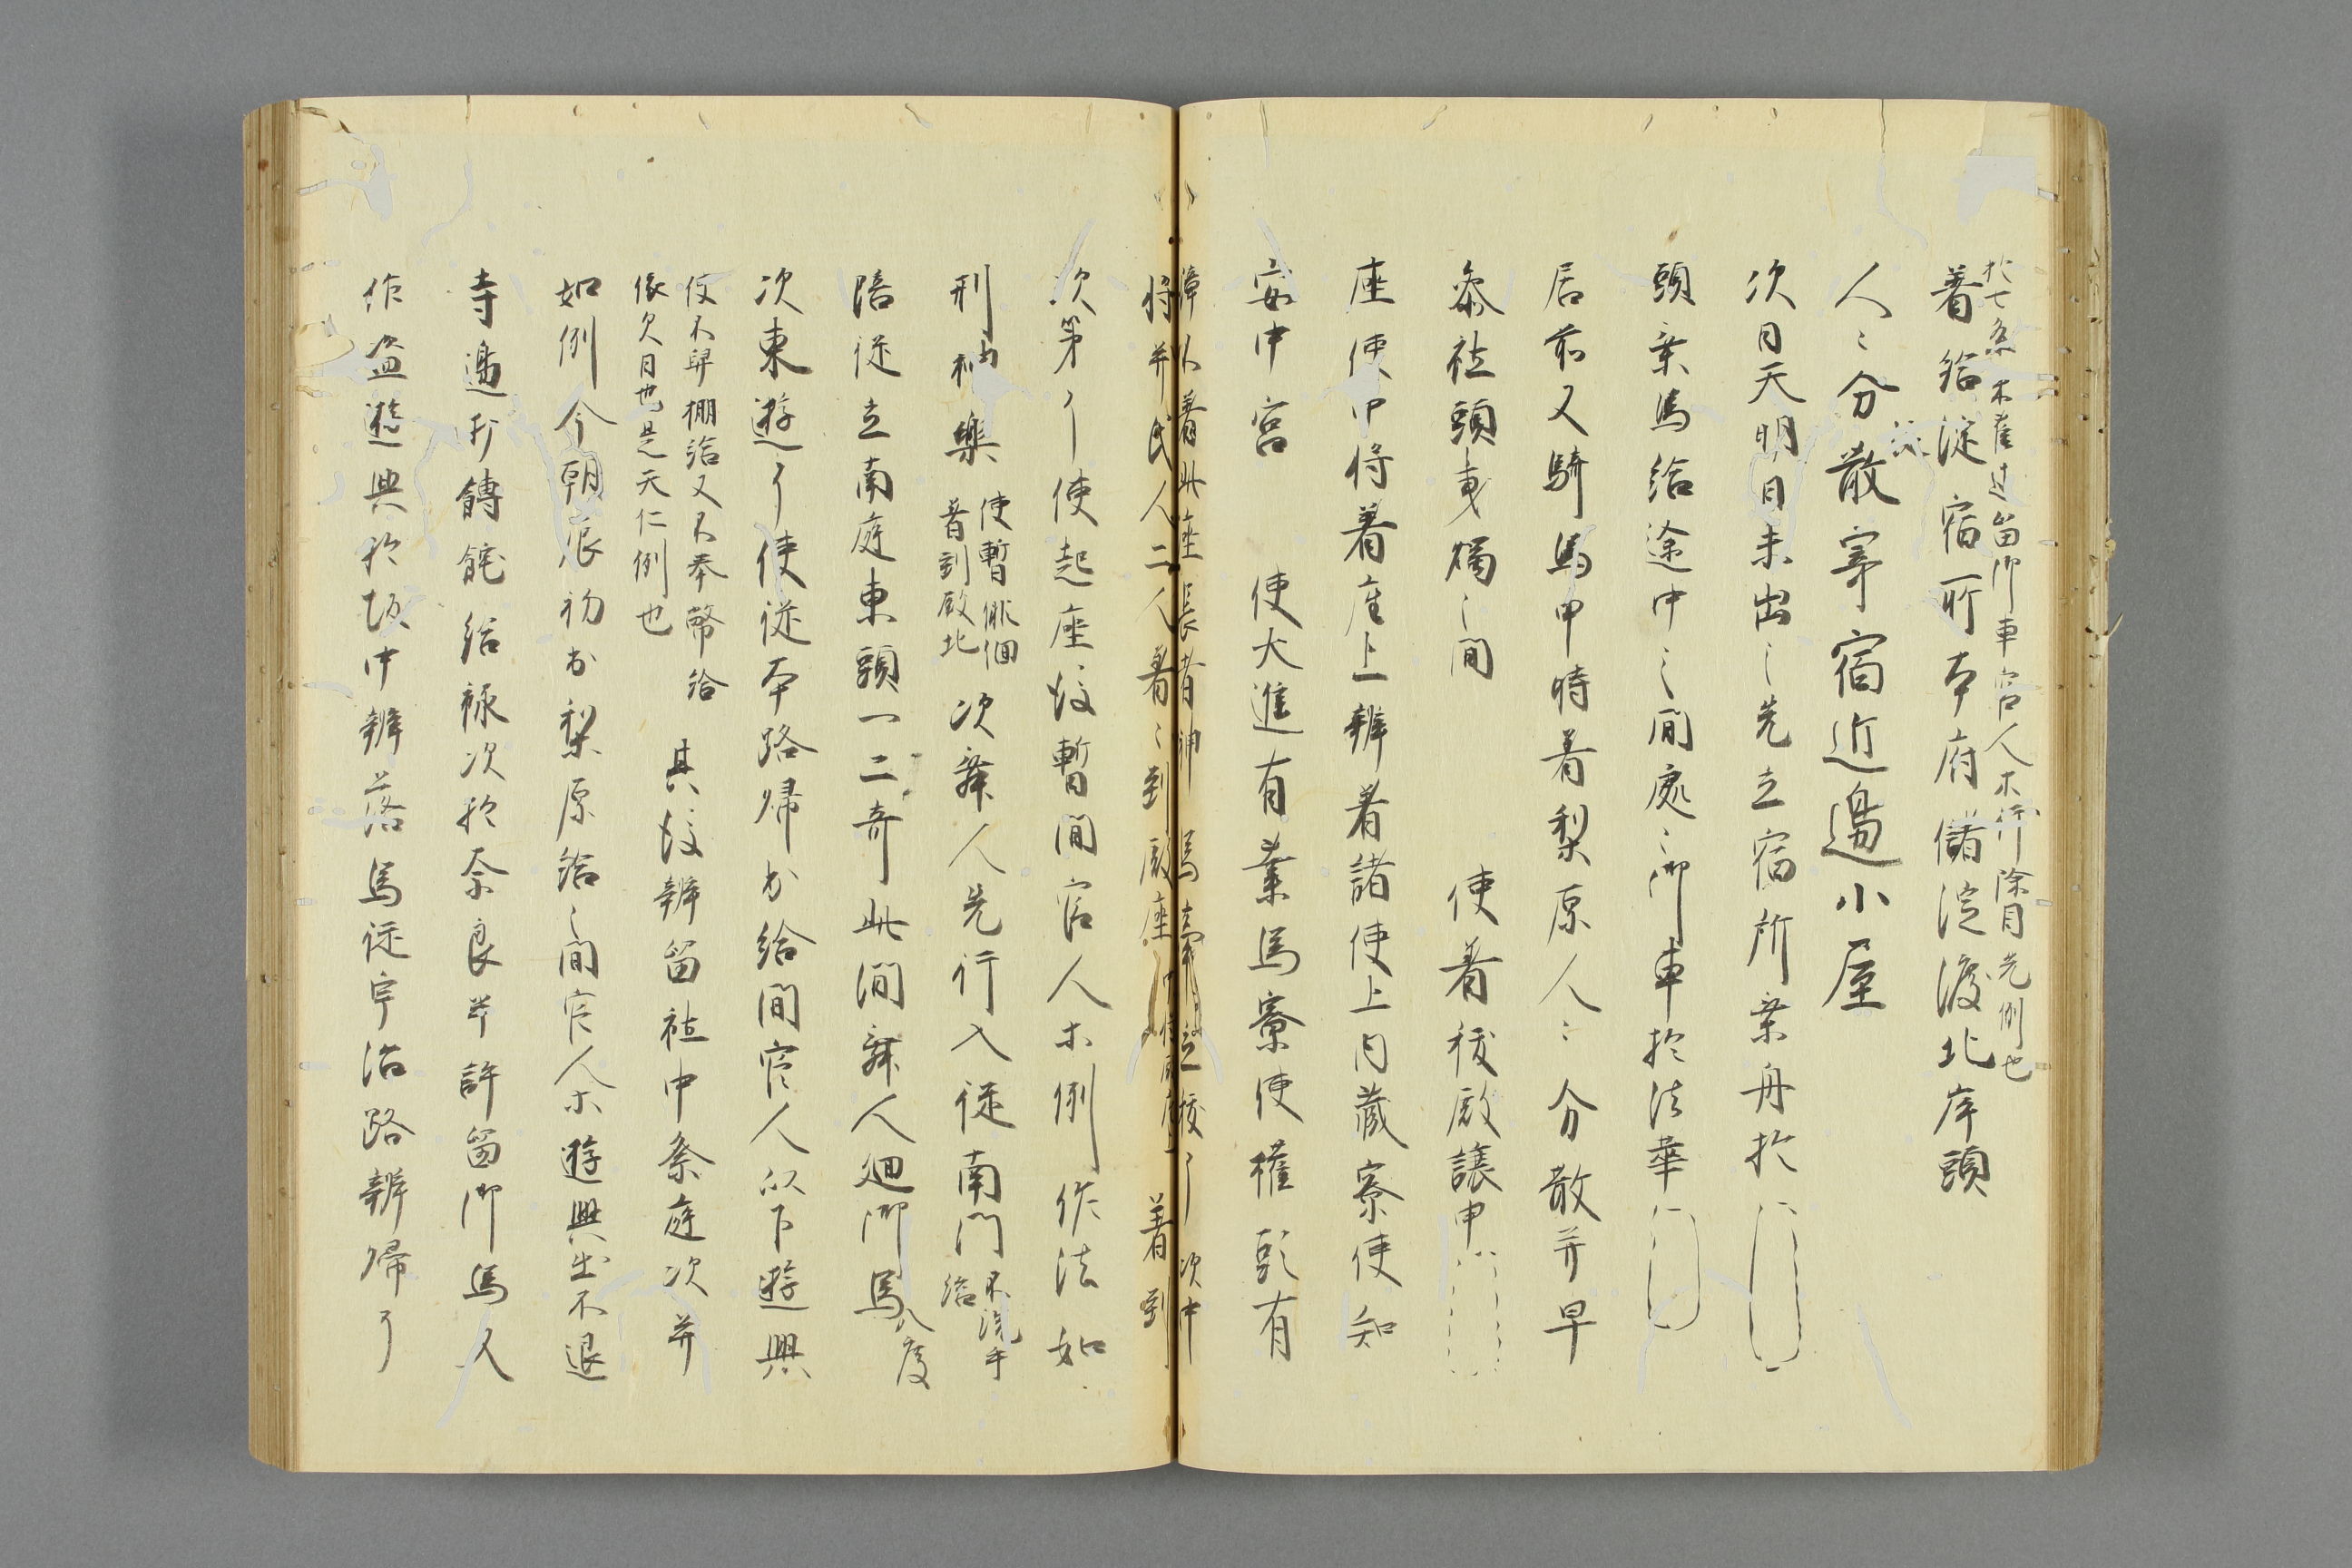 於七条朱雀辺留御車官人木行除月先例也
著給淀宿所本府儲淀渡北岸頭
人々分散寄宿近邊小屋
次日天明日未出之先立宿所乗舟於
頭乗馬給途中之間處々御車於法華
居前又騎馬申時着梨原人々分散并早
参社頭乗燭之間　使着祓殿譲申
座使中将着座上辨着諸使上内藏寮使知
家中宮　使大進有業馬寮使權頭有
以着此座長者神馬牽立祓了次中
将并氏人二人着々到殿座着到
次第了使起座後暫間官人木例作法如
刑神樂使暫徘徊
着到殿北次舞人先行入従南門不洗手
給
陪従立南庭東頭一二奇此間舞人廻御馬八度
次東遊了使従本路帰出給間官人以下遊興
使不昇棚給又不奉幣給
依欠日也是天仁例也其後辨留社中参庭次并
如例今朝辰初出梨原給之間官人木遊興出不退
寺邊形餺飥給禄次於奈良坂許留御馬人
作盗遊興於坂中辨落馬従宇治路辨帰了